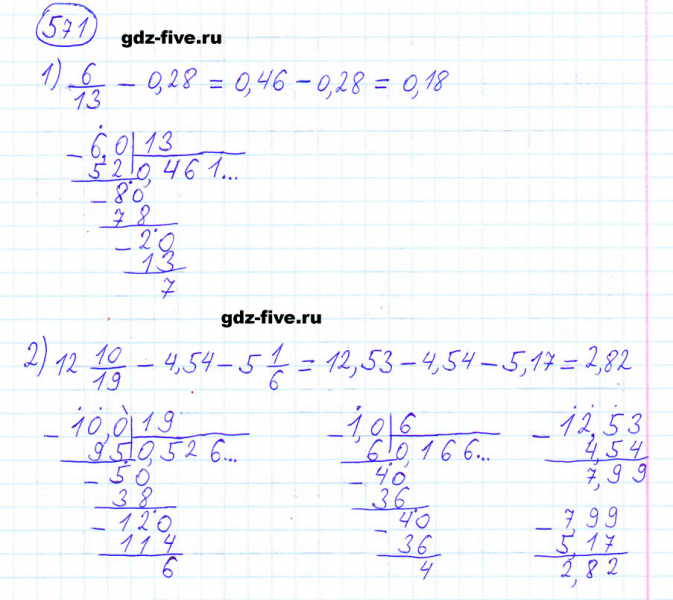 571
gdz-five.ru
1) 6/13 - 0,28 = 0,46 - 0,28 = 0,18
- 6,0 | 13
5 2 | 0,461...
- 80
78
- 20
13
7
gdz-five.ru
2) 12 10/19 - 4,54 - 5 1/6 = 12,53 - 4,54 - 5,17 = 2,82
- 10,0 | 19
95 | 0,526...
- 50
38
- 120
114
6
- 1,0 | 6
6 | 0,166...
- 40
36
- 40
36
4
- 12,53
4,54
7,99
- 7,99
5,17
2,82